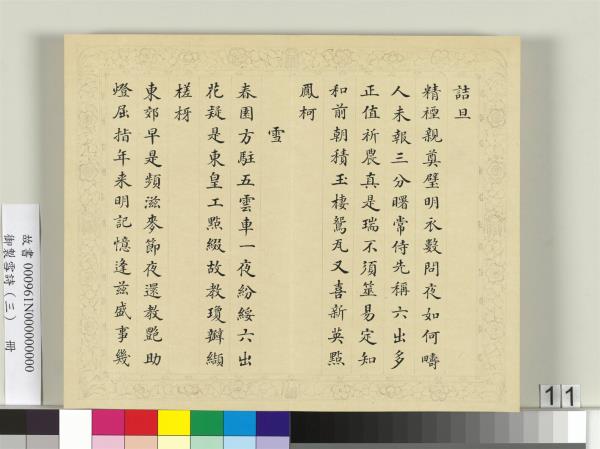 詰旦
精禋親奠璧明衣數問夜如何疇
人未報三分曙常侍先稱六出多
正值祈農真是瑞不須筮易定知
和前朝積玉棲鴛瓦又喜新英點
鳳柯
雪
春園方駐五雲車一夜紛綏六出
花疑是東皇工點綴故教瓊瓣纈
槎枒
東郊早是頻滋麥節夜還教艷助
燈屈指年来明記憶逢兹盛事幾
故書000961N000000000
御製雪詩(三) 冊
11